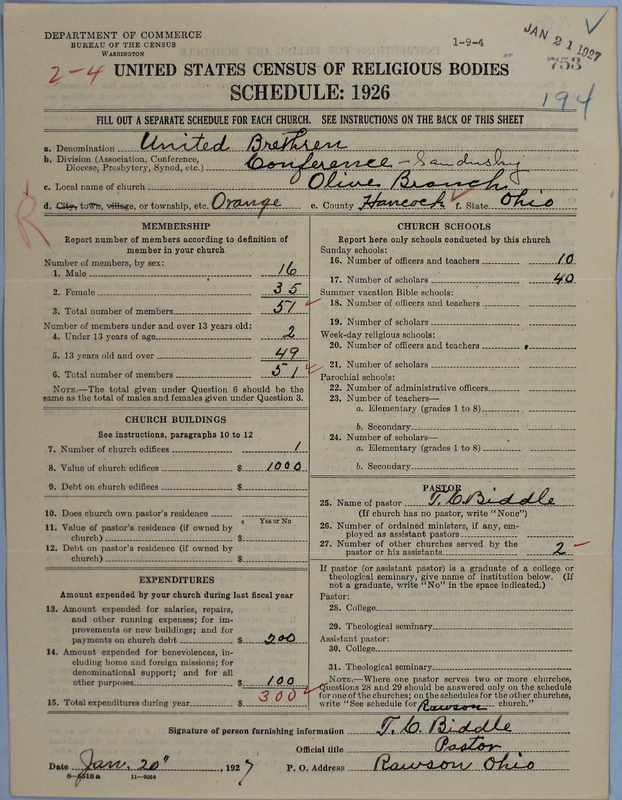 DEPARTMENT OF COMMERCE
BUREAU OF THE CENSUS
WASHINGTON
1-9-4
JAN 21 1927
753
2-4
194
UNITED STATES CENSUS OF RELIGIOUS BODIES
SCHEDULE: 1926
FILL OUT A SEPARATE SCHEDULE FOR EACH CHURCH. SEE INSTRUCTIONS ON THE BACK OF THIS SHEET
a. Denomination United Brethren
b. Division (Association, Conference,
Diocese, Presbytery, Synod, etc.) Conference - Sandusky
c. Local name of church Olive Branch
d. City, town, village, or township, etc. Orange e. County Hancock f. State Ohio
R
MEMBERSHIP
Report number of members according to definition of
member in your church
Number of members, by sex:
1. Male 16
2. Female 35
3. Total number of members 51
Number of members under and over 13 years old:
4. Under 13 years of age 2
5. 13 years old and over 49
6. Total number of members 51
NOTE.—The total given under Question 6 should be the
same as the total of males and females given under Question 3.
CHURCH BUILDINGS
See instructions, paragraphs 10 to 12
7. Number of church edifices 1
8. Value of church edifices $ 1000
9. Debt on church edifices $
10. Does church own pastor's residence
Yes or No
11. Value of pastor's residence (if owned by
church) $
12. Debt on pastor's residence (if owned by
church) $
EXPENDITURES
Amount expended by your church during last fiscal year
13. Amount expended for salaries, repairs,
and other running expenses; for im-
provements or new buildings; and for
payments on church debt $ 200
14. Amount expended for benevolences, in-
cluding home and foreign missions; for
denominational support; and for all
other purposes $ 100
15. Total expenditures during year $ 300
CHURCH SCHOOLS
Report here only schools conducted by this church
Sunday schools:
16. Number of officers and teachers 10
17. Number of scholars 40
Summer vacation Bible schools:
18. Number of officers and teachers
19. Number of scholars
Week-day religious schools:
20. Number of officers and teachers
21. Number of scholars
Parochial schools:
22. Number of administrative officers
23. Number of teachers—
a. Elementary (grades 1 to 8)
b. Secondary
24. Number of scholars—
a. Elementary (grades 1 to 8)
b. Secondary
PASTOR
25. Name of pastor T. C. Biddle
(If church has no pastor, write "None")
26. Number of ordained ministers, if any, em-
ployed as assistant pastors
27. Number of other churches served by the
pastor or his assistants 2
If pastor (or assistant pastor) is a graduate of a college or
theological seminary, give name of institution below. (If
not a graduate, write "No" in the space indicated.)
Pastor:
28. College
29. Theological seminary
Assistant pastor:
30. College
31. Theological seminary
NOTE.—Where one pastor serves two or more churches,
Questions 28 and 29 should be answered only on the schedule
for one of the churches; on the schedules for the other churches,
write "See schedule for Rawson church."
Signature of person furnishing information T. C. Biddle
Official title Pastor
Date Jan. 20", 1927 P. O. Address Rawson Ohio
8-5518a 11-9054